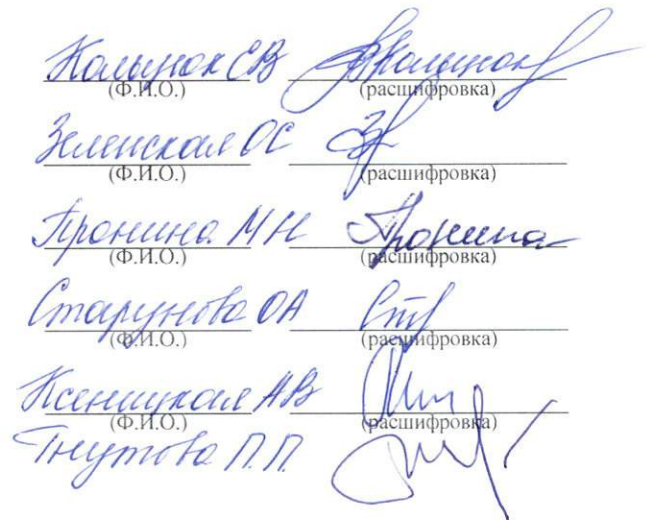 Колынок ЕВ Колынок
(Ф.И.О.) (расшифровка)
Зеленская ОС
(Ф.И.О.) (расшифровка)
Пронина МН Пронина
(Ф.И.О.) (расшифровка)
Старунова ОА
(Ф.И.О.) (расшифровка)
Ксеницкая АВ
(Ф.И.О.) (расшифровка)
Гнутова П.П.